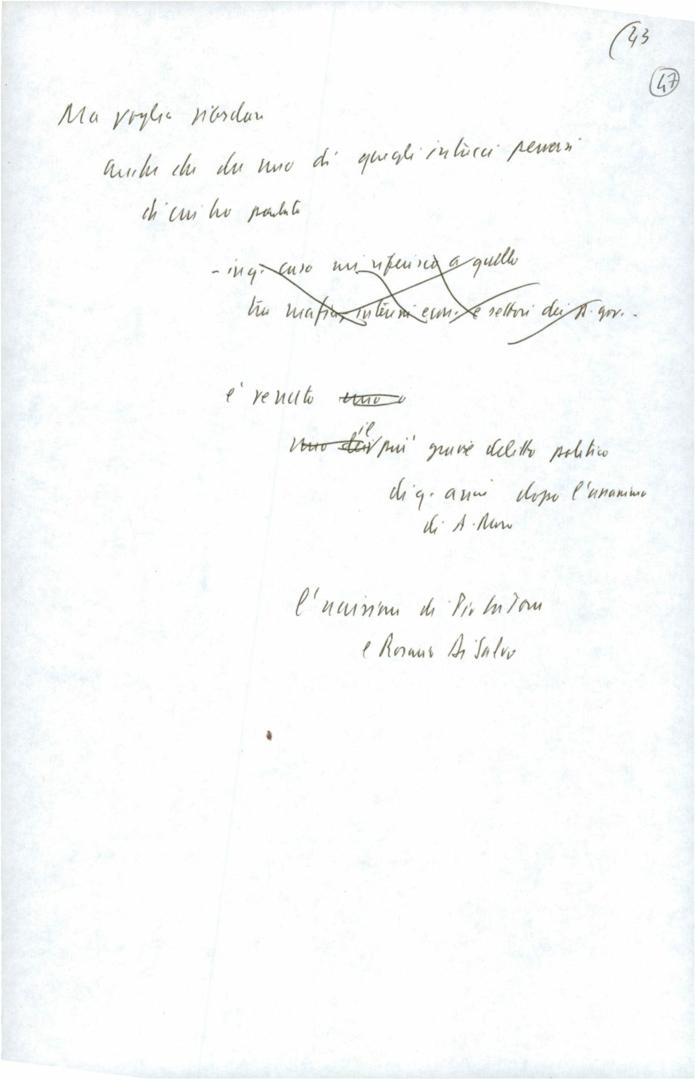 (43
47
Ma voglio ricordare
anche che da uno di quegli intrecci perversi
di cui ho parlato
- in q. caso mi riferisco a quello
tra mafia, interessi econ. e settori dei A. gov. -
è venuto uno
uno dei il più grave delitto politico
di q. anni dopo l'assassinio
di A. Moro
l'uccisione di Pio La Torre
e Rosario Di Salvo